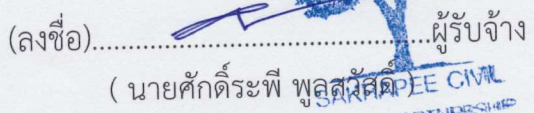 (ลงชื่อ)..................................................ผู้รับจ้าง
( นายศักดิ์ระพี พูลสวัสดิ์ )
SAKRAPEE CIVIL